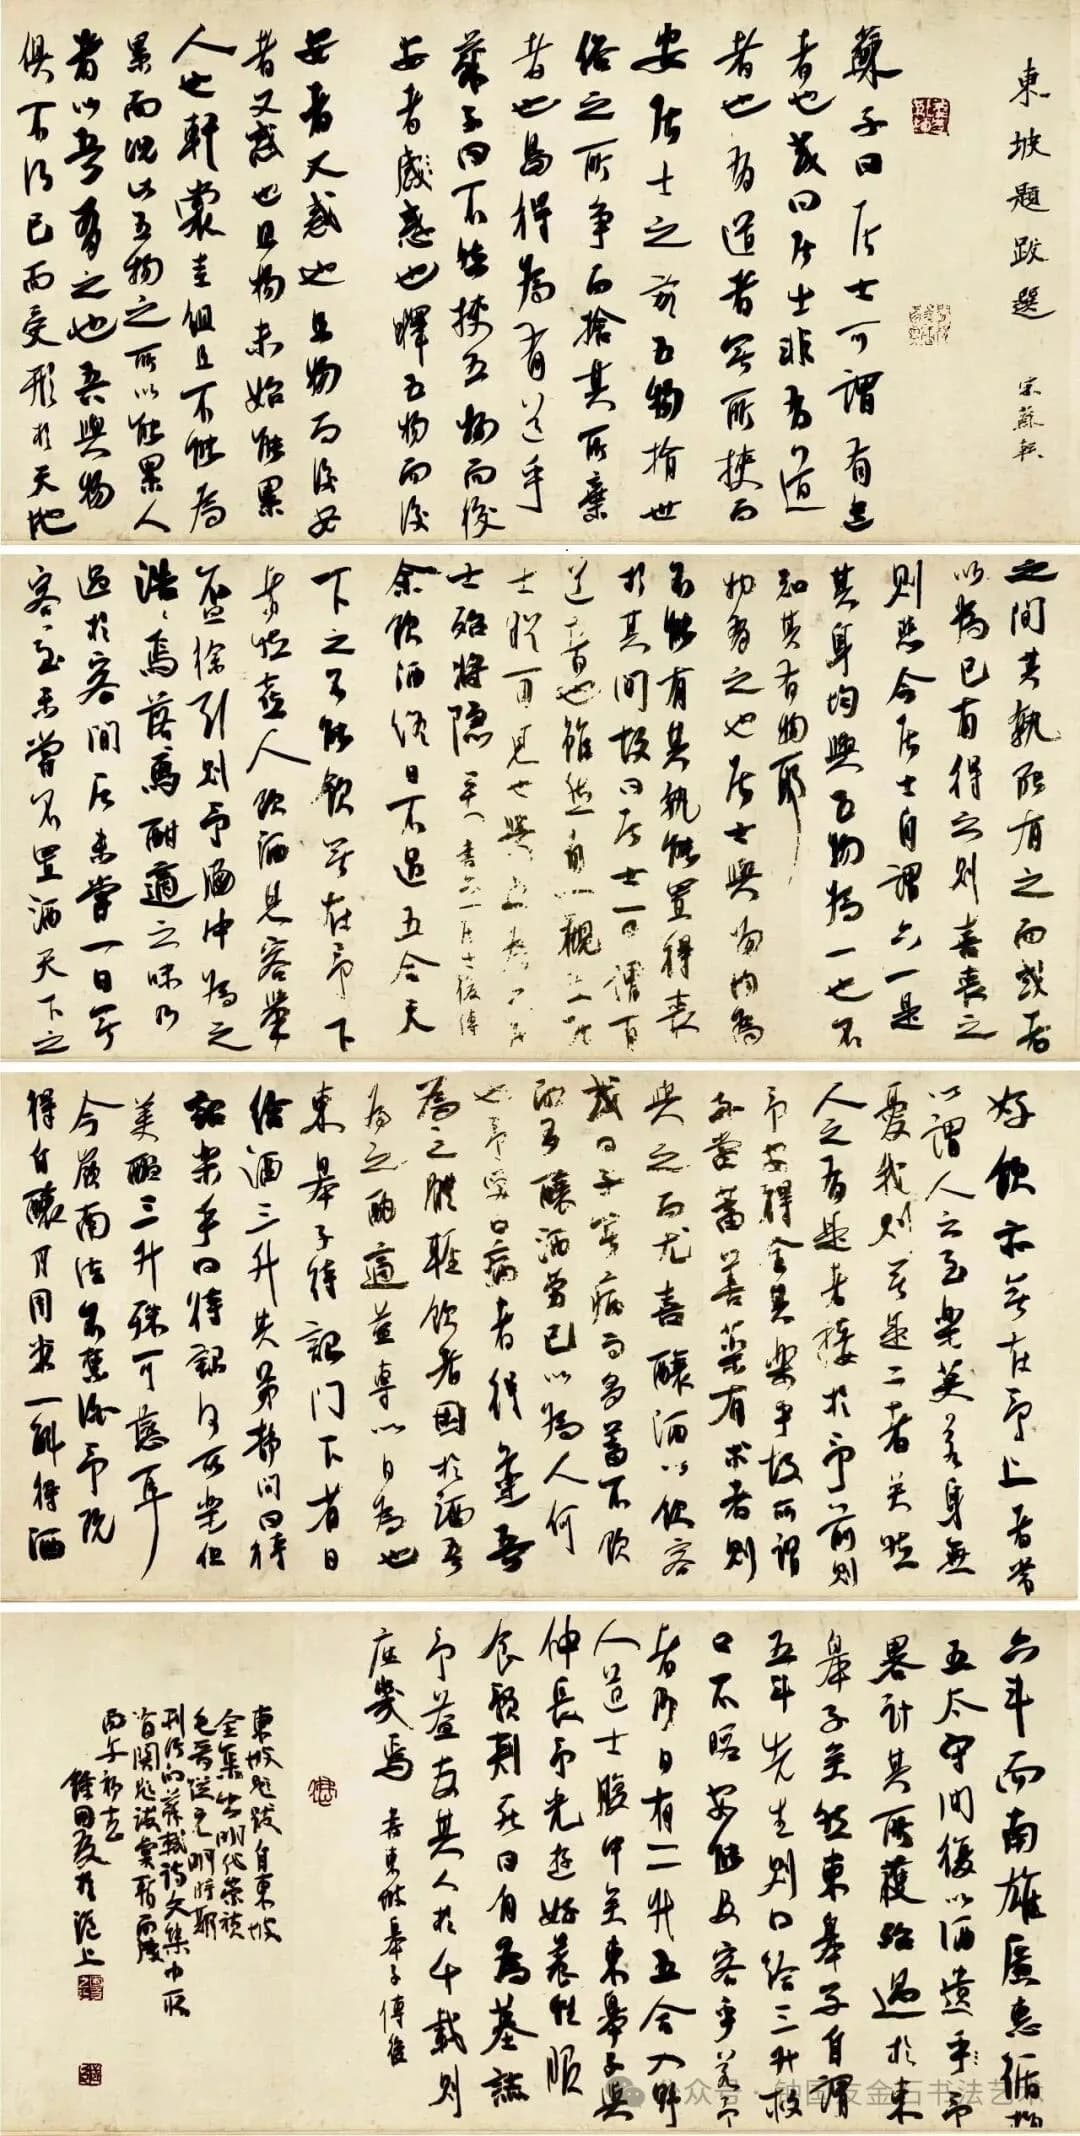 東坡題跋選 宋蘇軾
蘇子曰居士可謂有道
者也或曰居士非有道
者也有道者無所挾而
安居士之於五物捐世
俗之所爭而拾其所棄
者也烏得為有道乎
蘇子曰不然挾五物而後
安者感惑也釋五物而後
安者又惑也且物而後安
者又惑也且物未始能累
人也軒裳圭組且不能為
累而況此五物之所以能累人
者以吾有之也吾與物
俱不得已而受形於天地
之間其孰能有之而或者
以為己有得之則喜喪之
則悲今居士自謂六一是
其身均與五物為一也不
知其有物耶
物有之也居士與物均為
不能有其孰能置得喪
於其間故曰居士可謂有
道者也雖然自一觀五居
士猶可見也與五為六居
士殆將隱 書六一居士後傳
余飲酒終日不過五合天
下之不能飲無在予下
者然喜人飲酒見客舉
盃徐引則予胸中為之
浩浩焉落焉酣適之味乃
過於客閒居未嘗一日無
客客至未嘗不置酒天下之
好飲亦無在予上者常
以謂人之至樂莫若身無
憂我則無是二者矣然
人之有是者接於予前則
予安得全其樂乎故所謂
當蓄善藥有求者則
與之而尤喜釀酒以飲客
或曰子無病而多蓄不飲
而多釀酒勞己以為人何
也予笑曰病者得藥吾
為之體輕飲者困於酒吾
為之酣適蓋專以自為也
東皋子待詔門下省日
給酒三升其弟靜問曰待
詔樂乎曰待詔何所樂但
美醞三升殊可戀耳
今嶺南法不禁酒予既
得自釀月用米一斛得酒
六斗而南雄廣惠循梅
五太守間復以酒遺予予
畧計其所獲殆過於東
皋子矣然東皋子自謂
五斗先生則日給三升救
口不暇安能及客乎若予
者乃日有二升五合入野
人道士腹中矣東皋子與
仲長子光遊好養性服
食預刻死日自為墓誌
予蓋友其人於千載則
庶幾焉 書東皋子傳後
東坡題跋自東坡
全集出明代崇禎
毛晉從元明時
刊行的蘇軾詩文集中取
有關題跋彙輯而成
丙午初吉
鍾國友於滬上
公众号·钟国友金石书法艺术